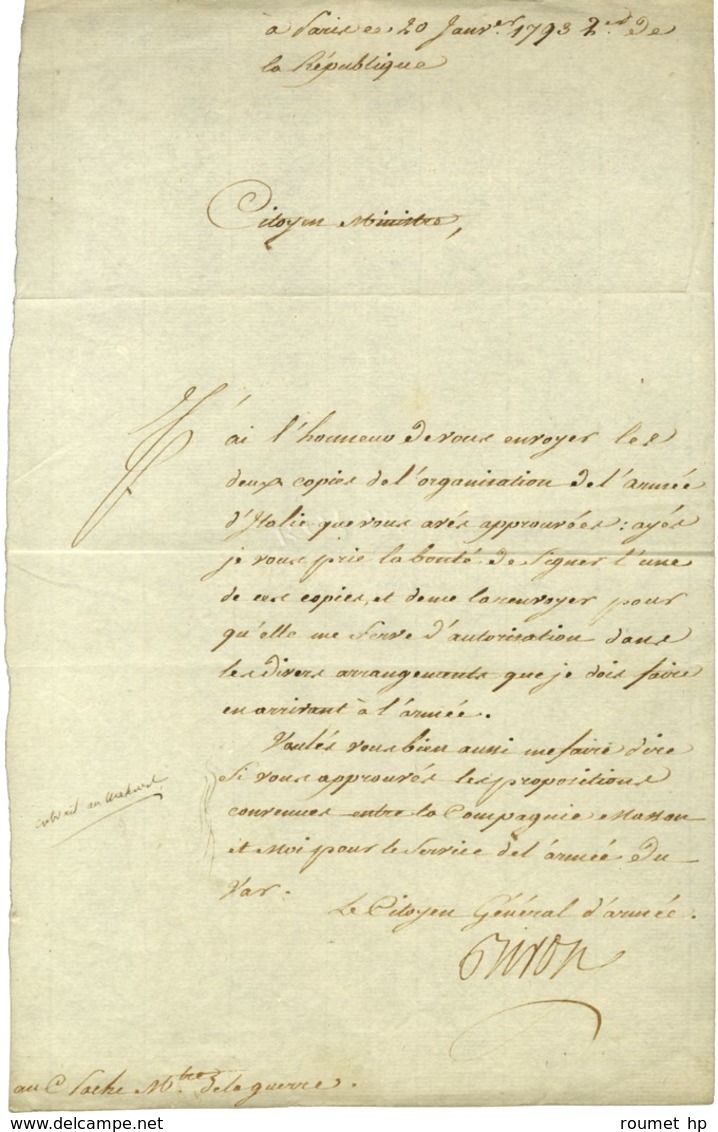 à Paris ce 20 Janv.er 1793 2.e de
la République
Citoyen Ministre,
J'ai l'honneur de vous envoyer les
deux copies de l'organisation de l'armée
d'Italie que vous avés approuvées: ayés
je vous prie la bonté de signer l'une
de ces copies, et de me la renvoyer pour
qu'elle me serve d'autorisation dans
les divers arrangements que je dois faire
en arrivant à l'armée.
Voulés vous bien aussi me faire dire
si vous approuvés les propositions
convenues entre la Compagnie Masson
et Moi pour le service de l'armée du
Var.
extrait au
Le Citoyen Général d'armée.
Biron
au C Pache M.tre de la guerre.
roumet hp